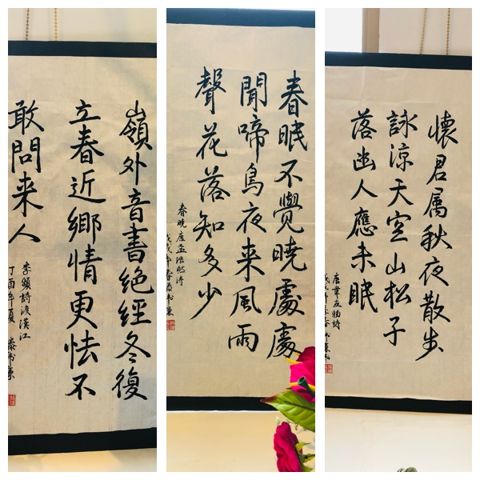 嶺外音書絕經冬復
立春近鄉情更怯不
敢問来人
李頻詩渡漢江
丁酉年夏
春眠不覺曉處處
聞啼鳥夜来風雨
聲花落知多少
春曉唐孟浩然诗
戊戌年春
懷君属秋夜散步
詠涼天空山松子
落幽人應未眠
唐韋應物詩